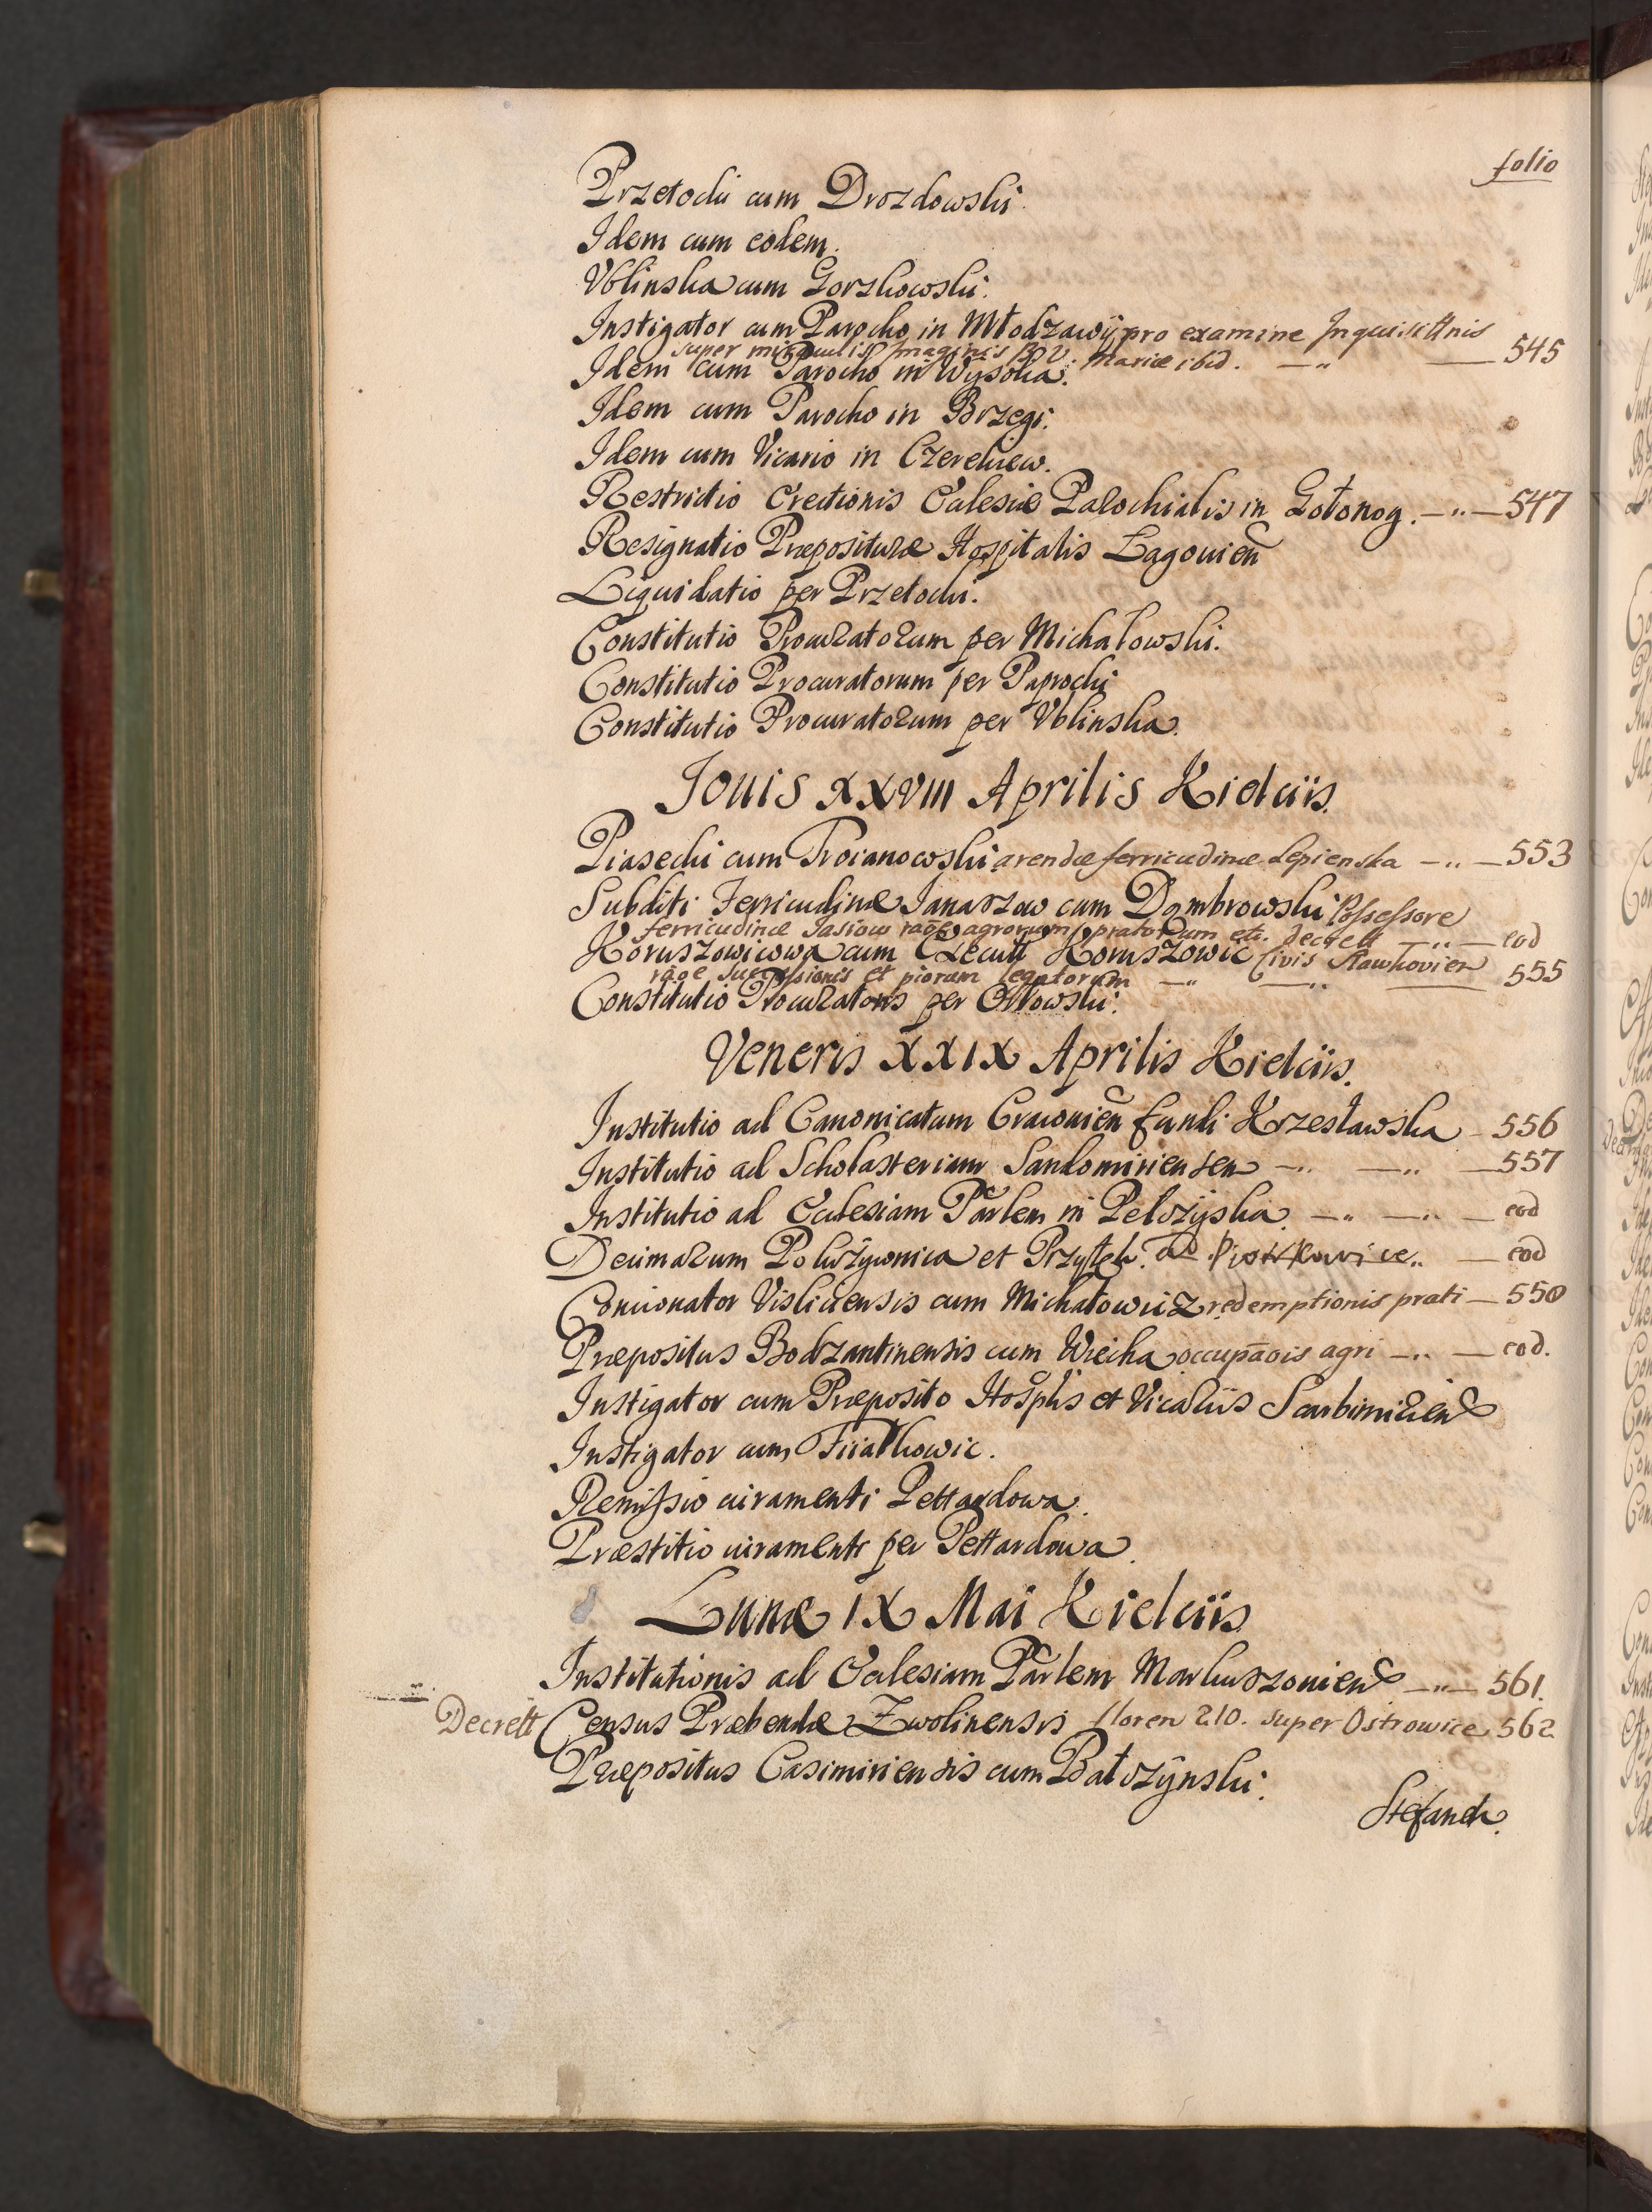 folio
Przetocki cum Drozdowski.
Idem cum eodem.
Vblinska cum Gorzkowski.
Instigator cum Parocho in Młodzawÿ pro examine Inquisittnis
super miraculis Imaginis B V. Mariæ ibid. —„ — 545
Idem cum Parocho in Wysoka.
Idem cum Parocho in Brzegi.
Idem cum Vicario in Czerekiew.
Restrictio Erectionis Ecclesiæ Parochialis in Gołonog. —„— 547
Resignatio Præpositurae Hospitalis Lagouien
Liquidatio per Przetocki.
Constitutio Procuratorum per Michałowski.
Constitutio Procuratorum per Paprocki
Constitutio Procuratorum per Vblinska.
Jouis XXVIII Aprilis Kielciis.
Piasecki cum Troianowski arendæ ferricudinæ Lepienska —„— 553
Subditi Ferricudinæ Janaszow cum Dąmbrowski Possessore
ferricudinæ Jasiow raõe agrorum pratorum etc. Decrett —„— eod
Koruszowicowa cum Execut Koruszowic Civis Slawkovien
raõe successionis et piorum legatorum —„ —„ — 555
Constitutio Procuratoris per Ottowski.
Veneris XXIX Aprilis Kielciis.
Institutio ad Canonicatum Cracouien fundi Krzesławska — 556
Institutio ad Scholasteriam Sandomiriensem —„ —„ — 557
Institutio ad Ecclesiam Parlem in Pelczÿska. —„ —„ — eod
Decimarum Pokrzywnica et Przyłęk. ad Piotrkowice„ — eod
Concionator Visliciensis cum Michałowicz redemptionis prati — 550
Præpositus Bodzantinensis cum Wiecha occupaõis agri —„ — eod.
Instigator cum Præposito Hosplis et Vicariis Scarbimirien
Instigator cum Fiiałkowic.
Remissio iuramenti Pettardowa.
Præstitio iuramenti per Pettardowa.
Lunæ IX Mai Kielciis
Institutionis ad Ecclesiam Parlem Markuszouien —„— 561.
Decrett Census Præbendæ Zwolinensis floren 210. super Ostrowice 562
Præpositus Casimiriensis cum Batczÿnski.
Stefanek.